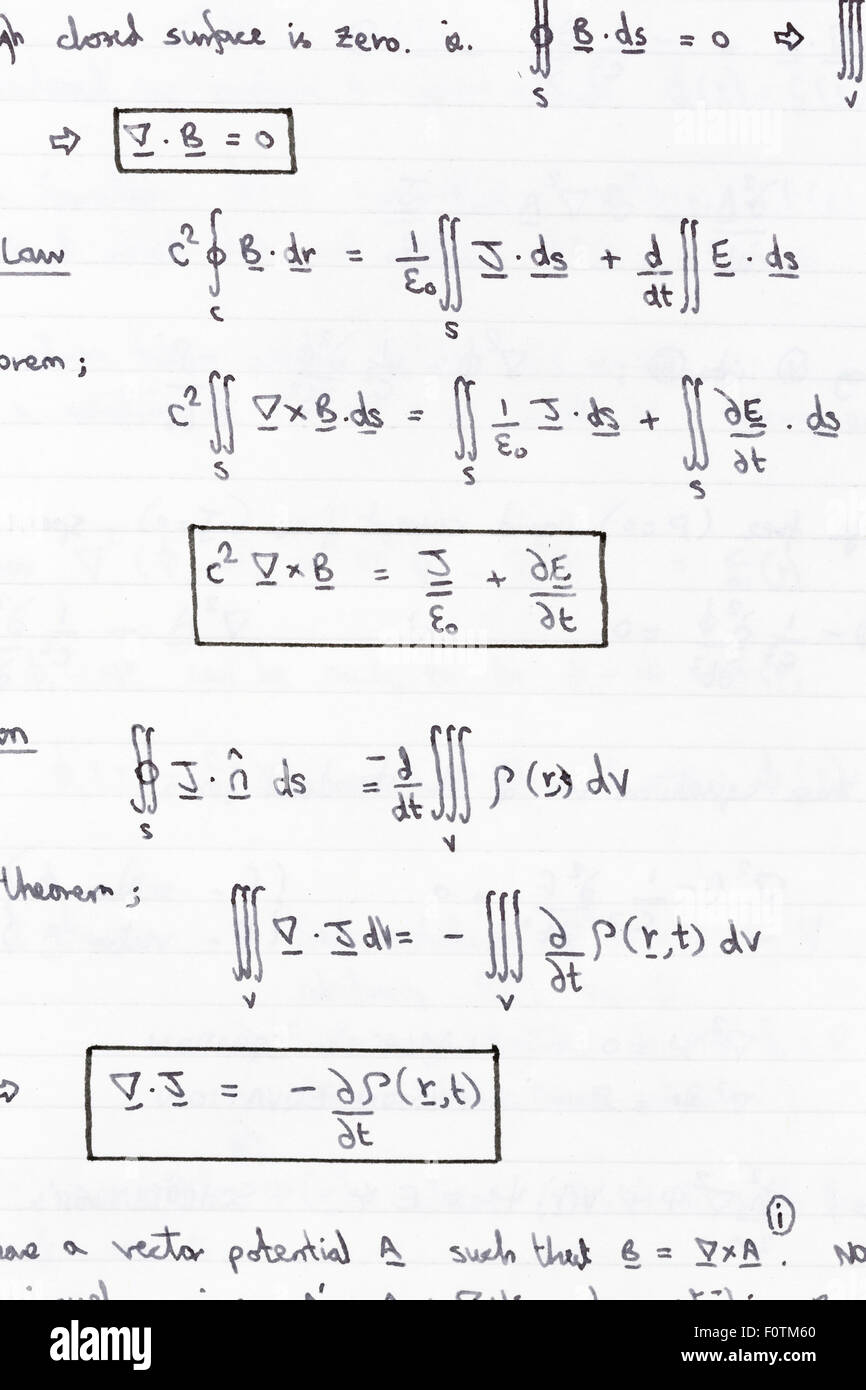 closed surface is zero. ie. ∯_S B̲ · d̲s̲ = 0 ⇒ ∭_V
⇒ ∇̲ · B̲ = 0
Law c² ∮_C B̲ · d̲r̲ = 1/ε₀ ∬_S J̲ · d̲s̲ + d/dt ∬ E̲ · d̲s̲
orem;
c² ∬_S ∇̲ × B̲ · d̲s̲ = ∬_S 1/ε₀ J̲ · d̲s̲ + ∬_S ∂E̲/∂t · d̲s̲
c² ∇̲ × B̲ = J̲/ε₀ + ∂E̲/∂t
on ∯_S J̲ · n̲̂ ds = - d/dt ∭_V ρ(r̲) dV
theorem;
∭_V ∇̲ · J̲ dV = - ∭_V ∂/∂t ρ(r̲,t) dV
⇒ ∇̲ · J̲ = - ∂ρ(r̲,t)/∂t
a vector potential A̲ such that B̲ = ∇̲ × A̲ ⓘ. No
alamy
alamy
Image ID: F0TM60
www.alamy.com